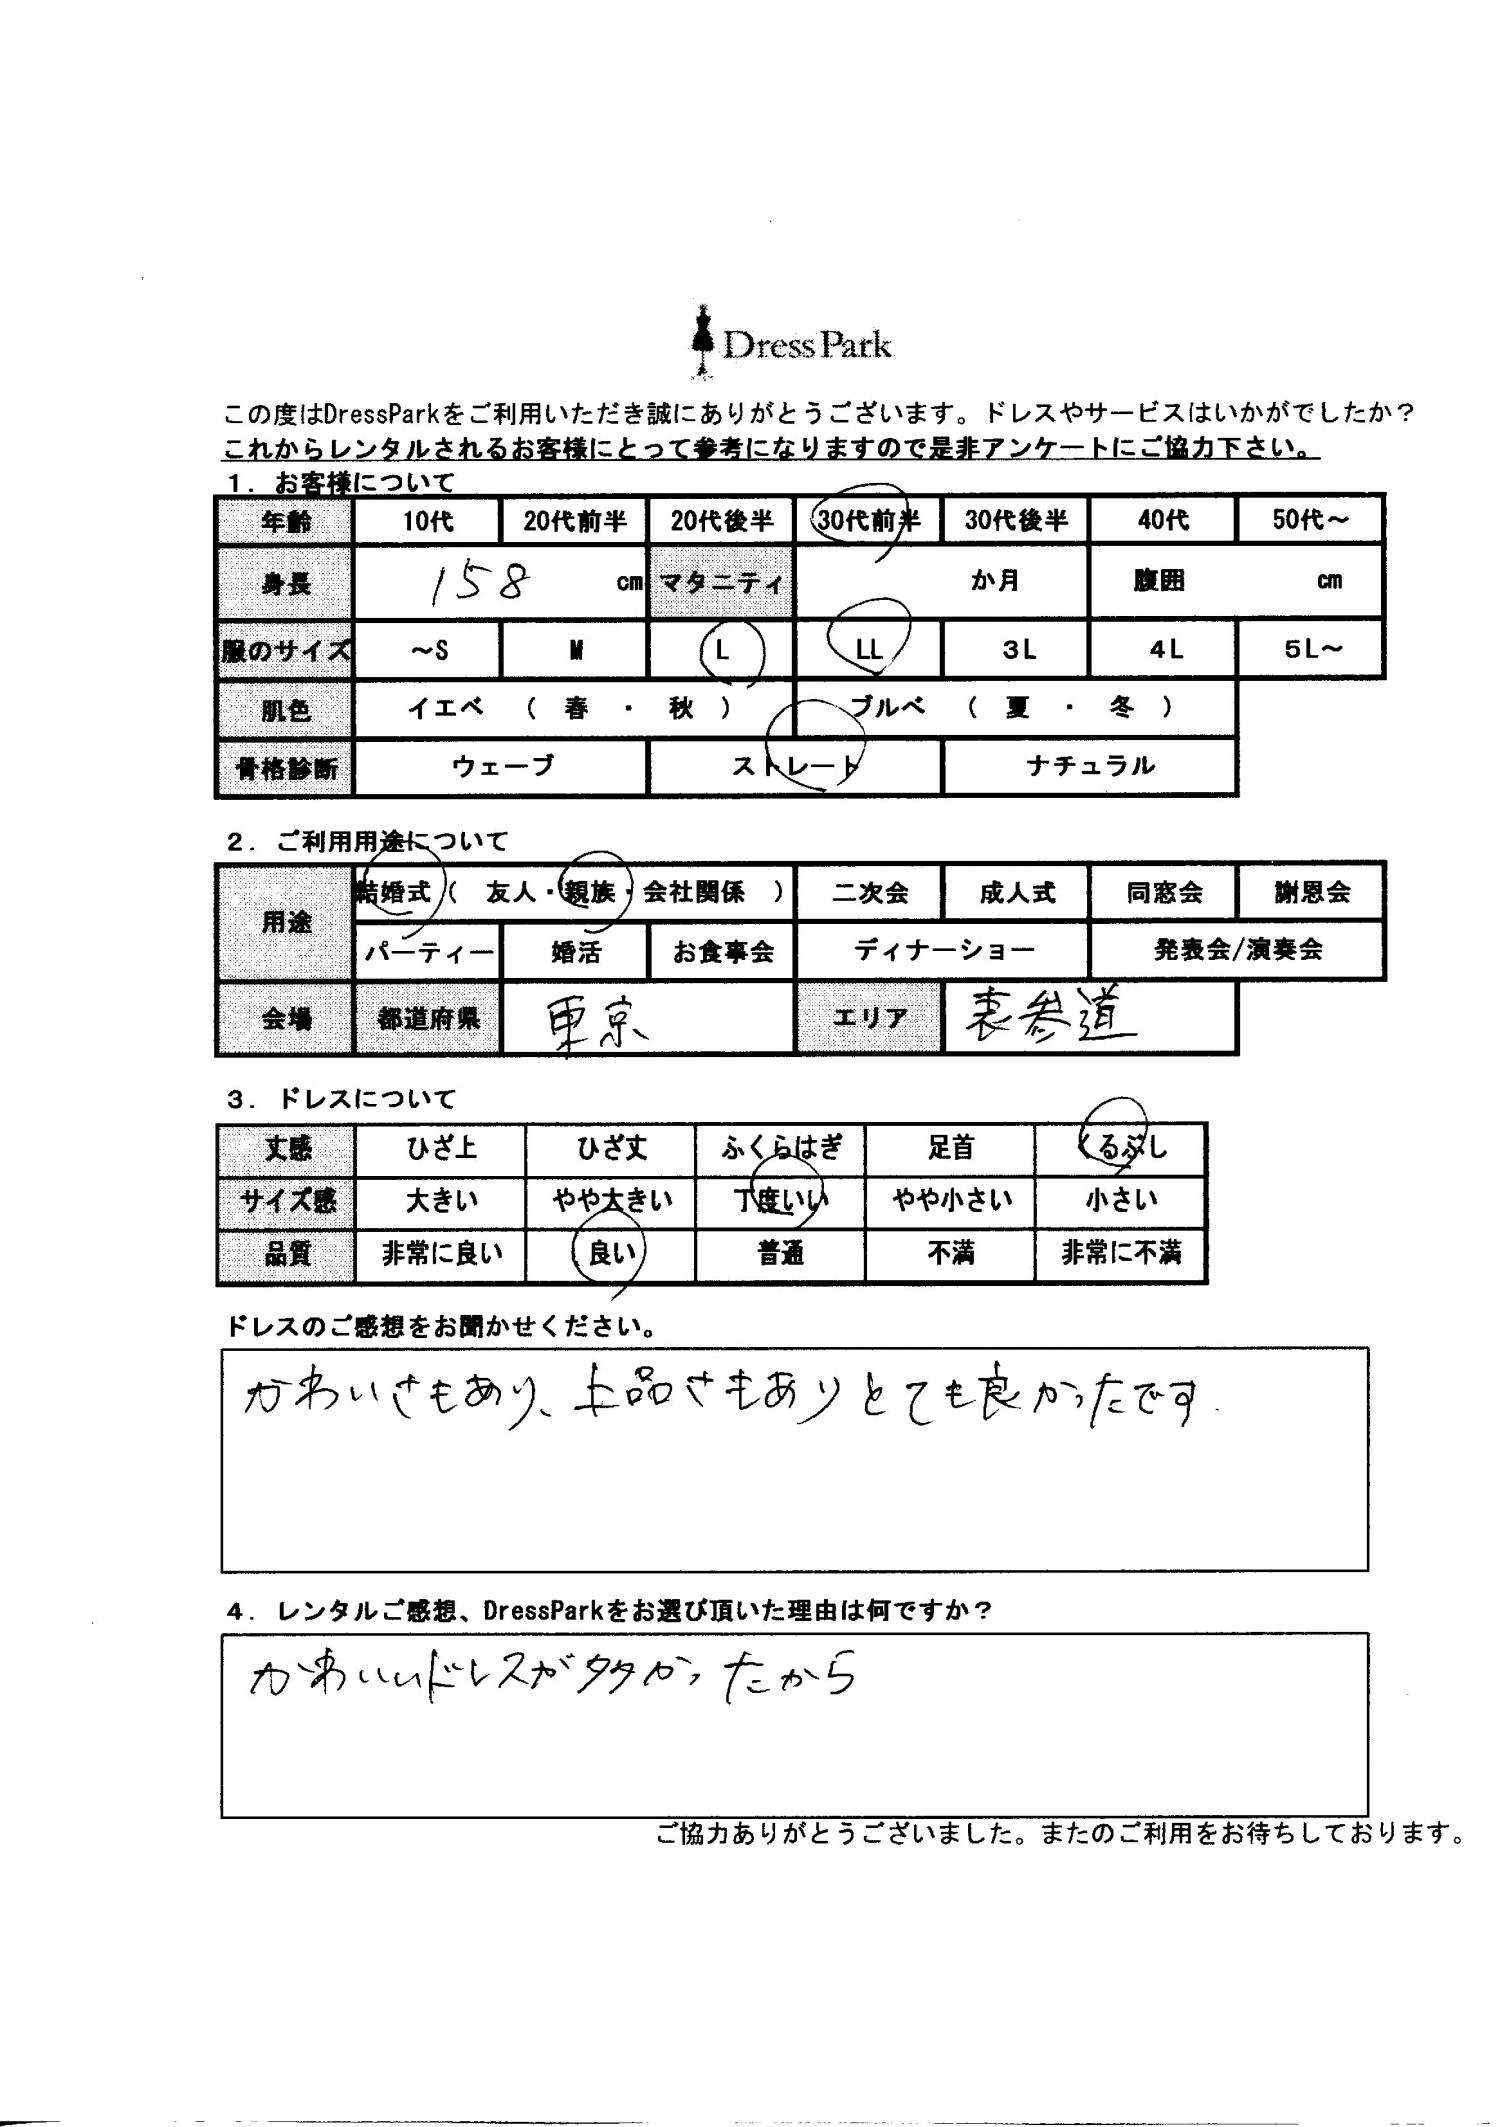 DressPark
この度はDressParkをご利用いただき誠にありがとうございます。ドレスやサービスはいかがでしたか？
これからレンタルされるお客様にとって参考になりますので是非アンケートにご協力下さい。
１．お客様について
年齢 10代 20代前半 20代後半 30代前半 30代後半 40代 50代～
身長 158 cm マタニティ か月 腹囲 cm
服のサイズ ～S M L LL 3L 4L 5L～
肌色 イエベ （ 春 ・ 秋 ） ブルベ （ 夏 ・ 冬 ）
骨格診断 ウェーブ ストレート ナチュラル
２．ご利用用途について
用途 結婚式（ 友人・親族・会社関係 ） 二次会 成人式 同窓会 謝恩会
パーティー 婚活 お食事会 ディナーショー 発表会/演奏会
会場 都道府県 東京 エリア 表参道
３．ドレスについて
丈感 ひざ上 ひざ丈 ふくらはぎ 足首 くるぶし
サイズ感 大きい やや大きい 丁度いい やや小さい 小さい
品質 非常に良い 良い 普通 不満 非常に不満
ドレスのご感想をお聞かせください。
かわいさもあり、上品さもありとても良かったです.
４．レンタルご感想、DressParkをお選び頂いた理由は何ですか？
かわいいドレスが多かったから
ご協力ありがとうございました。またのご利用をお待ちしております。